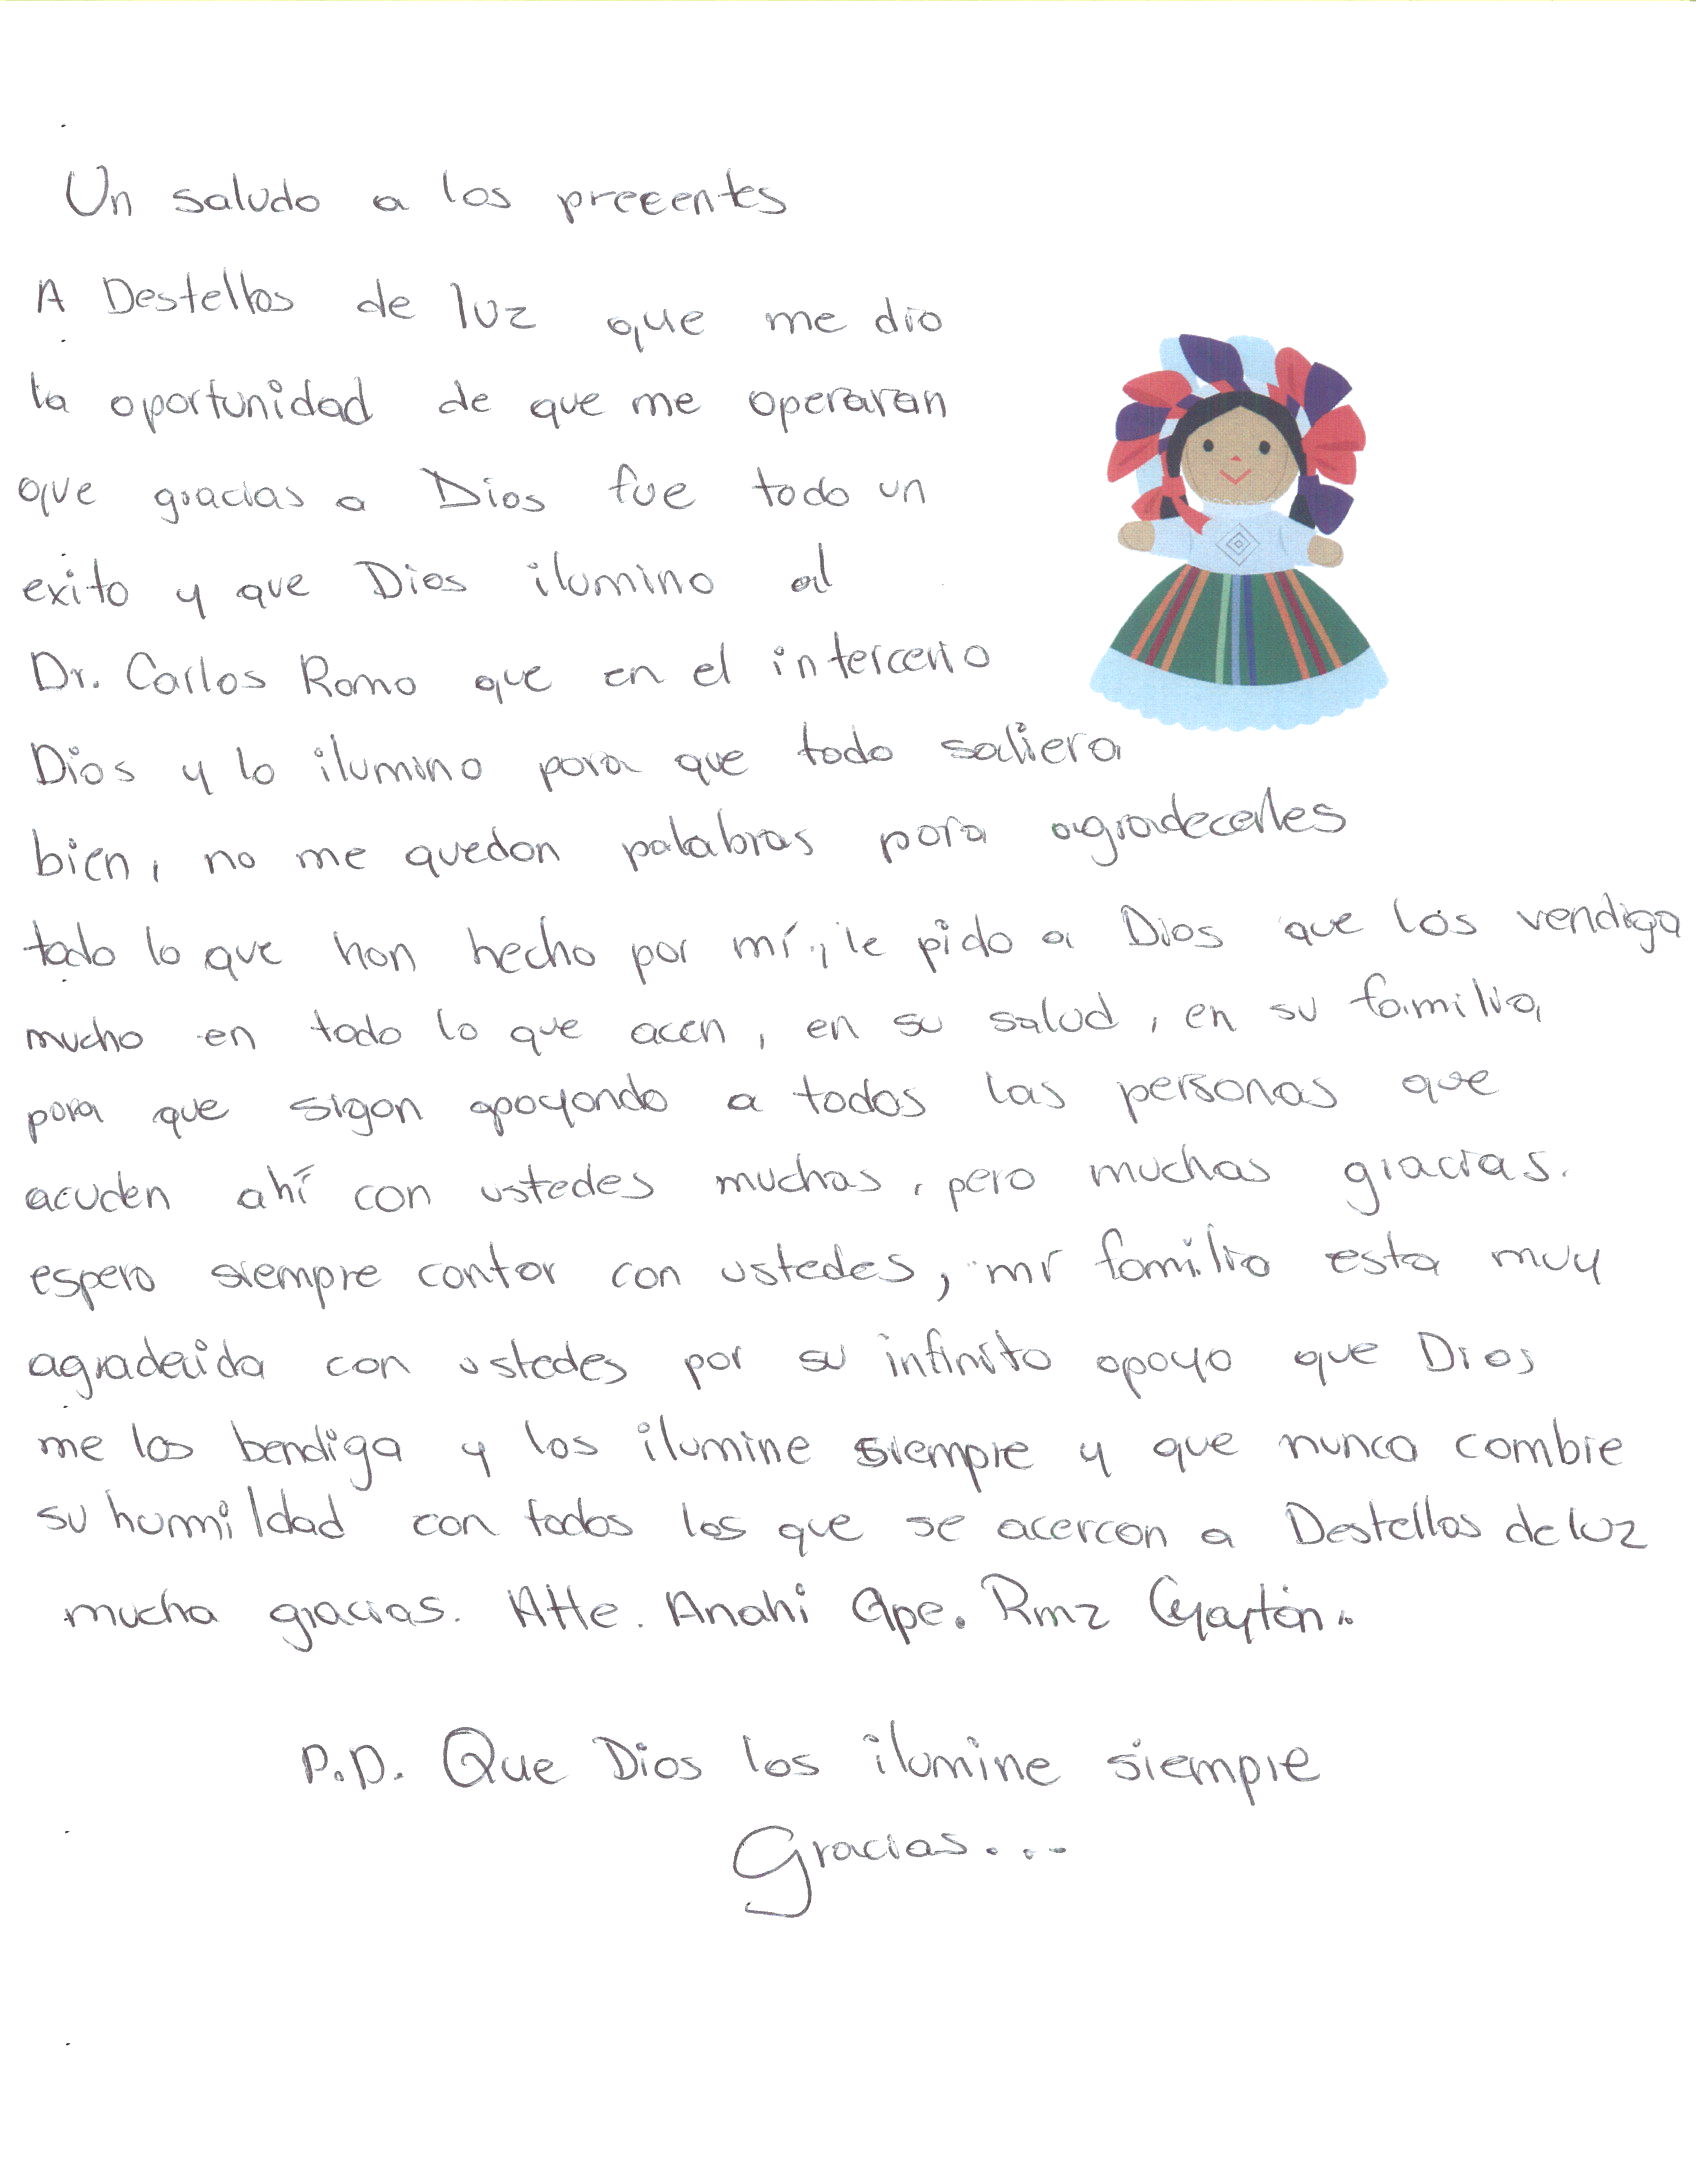 Un saludo a los precentes
A Destellos de luz que me dio
la oportunidad de que me operaran
que gracias a Dios fue todo un
exito y que Dios ilumino al
Dr. Carlos Romo que en el intercerio
Dios y lo ilumino para que todo saliera
bien, no me quedan palabras para agradecerles
todo lo que han hecho por mí, le pido a Dios que los vendiga
mucho en todo lo que acen, en su salud, en su familia,
para que sigan apoyando a todos las personas que
acuden ahí con ustedes muchas, pero muchas gracias.
espero siempre contar con ustedes, mi familia esta muy
agradecida con ustedes por su infinito apoyo que Dios
me los bendiga y los ilumine siempre y que nunca cambie
su humildad con todos los que se acercan a Destellos de luz
mucha gracias. Atte. Anahi Gpe. Rmz Gaytán..
P.D. Que Dios los ilumine siempre
Gracias...